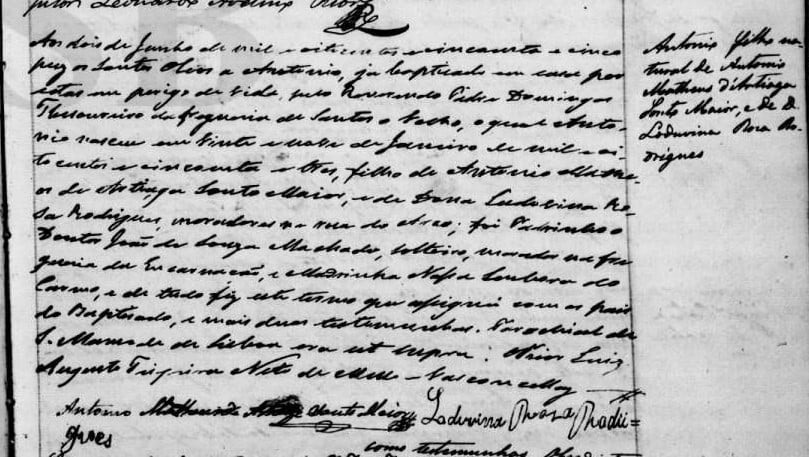 Aos dois de Junho de mil e oito centos e cincoenta e cinco
puz os Santos Olios a Antonio, ja baptizado em casa por
estar em perigo de vida, pelo Reverendo Padre Domingos
Thesoureiro da freguezia de Santos o Velho, o qual Anto-
nio nasceu em vinte e nove de Janeiro de mil e oi-
to centos e cincoenta e tres, filho de Antonio Mathe-
os de Artiaga Souto Maior, e de Dona Ludovina Ro-
sa Rodrigues, moradores na rua do Arco; foi Padrinho o
Doutor João de Souza Machado, solteiro, morador na fre
guezia da Encarnacão, e Madrinha Nossa Senhora do
Carmo, e de tudo fiz este termo que assignei com os pais
do Baptisado, e mais duas testemunhas. Parochial de
S. Mamede de Lisboa era ut supra. Prior Luiz
Augusto Neto de Vasconcellos
Antonio Souto Maior Lodovina Rosa Rodri=
gues
como testemunhas
Antonio filho na-
tural de Antonio
Matheus d'Artiaga
Souto Maior, e de D.
Loduvina Rosa Ro-
drigues